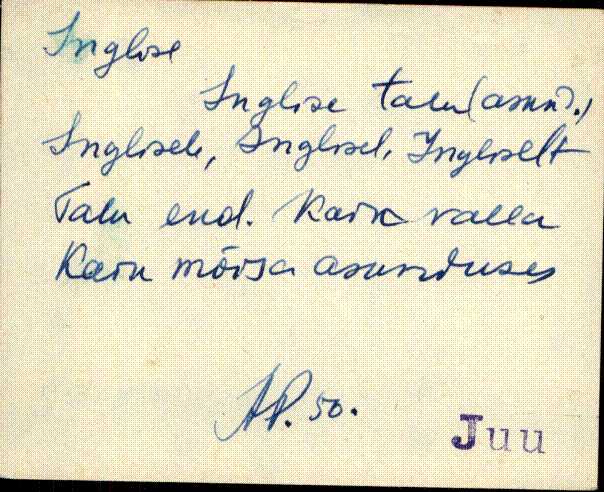 Inglise
Inglise talu (asund.)
Inglisele, Inglisel, Ingliselt
Talu end. Kaiu valla
Kaiu mõisa asunduses
AP. 50.
Juu